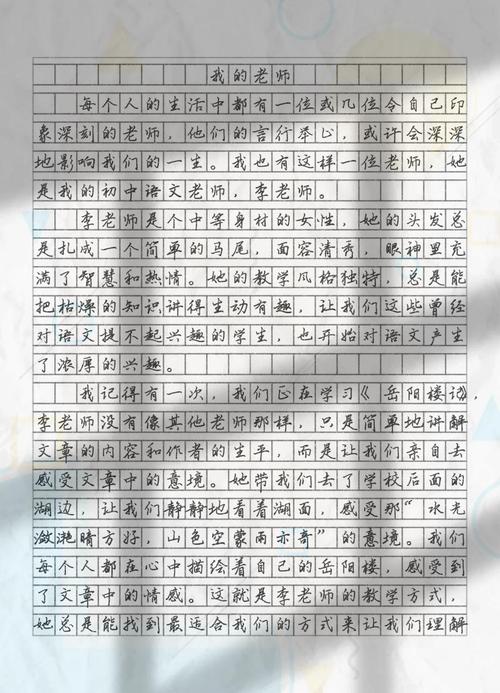 我的老师
每个人的生活中都有一位或几位令自己印
象深刻的老师，他们的言行举止，或许会深深
地影响我们的一生。我也有这样一位老师，她
是我的初中语文老师，李老师。
李老师是个中等身材的女性，她的头发总
是扎成一个简单的马尾，面容清秀，眼神里充
满了智慧和热情。她的教学风格独特，总是能
把枯燥的知识讲得生动有趣，让我们这些曾经
对语文提不起兴趣的学生，也开始对语文产生
了浓厚的兴趣。
我记得有一次，我们正在学习《岳阳楼记》，
李老师没有像其他老师那样，只是简单地讲解
文章的内容和作者的生平，而是让我们亲自去
感受文章中的意境。她带我们去了学校后面的
湖边，让我们静静地看着湖面，感受那“水光
潋滟晴方好，山色空蒙雨亦奇”的意境。我们
每个人都在心中描绘着自己的岳阳楼，感受到
了文章中的情感。这就是李老师的教学方式，
她总是能找到最适合我们的方式来让我们理解